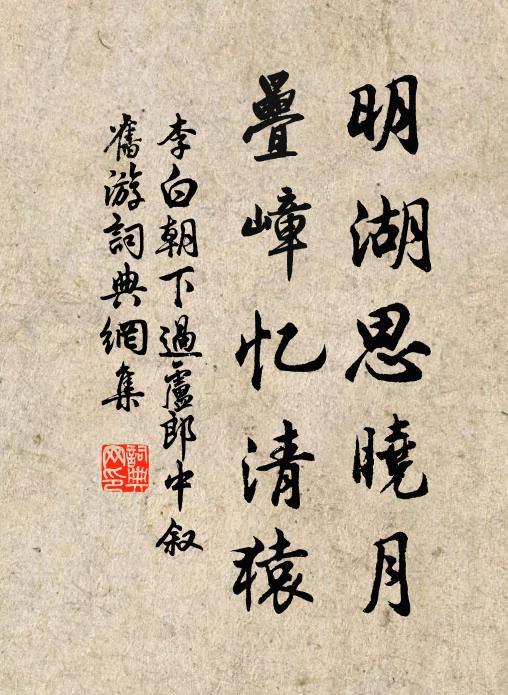 明湖思曉月
疊嶂忆清猿
李白朝下過盧郎中叙
舊游詞典網集
詞典网印